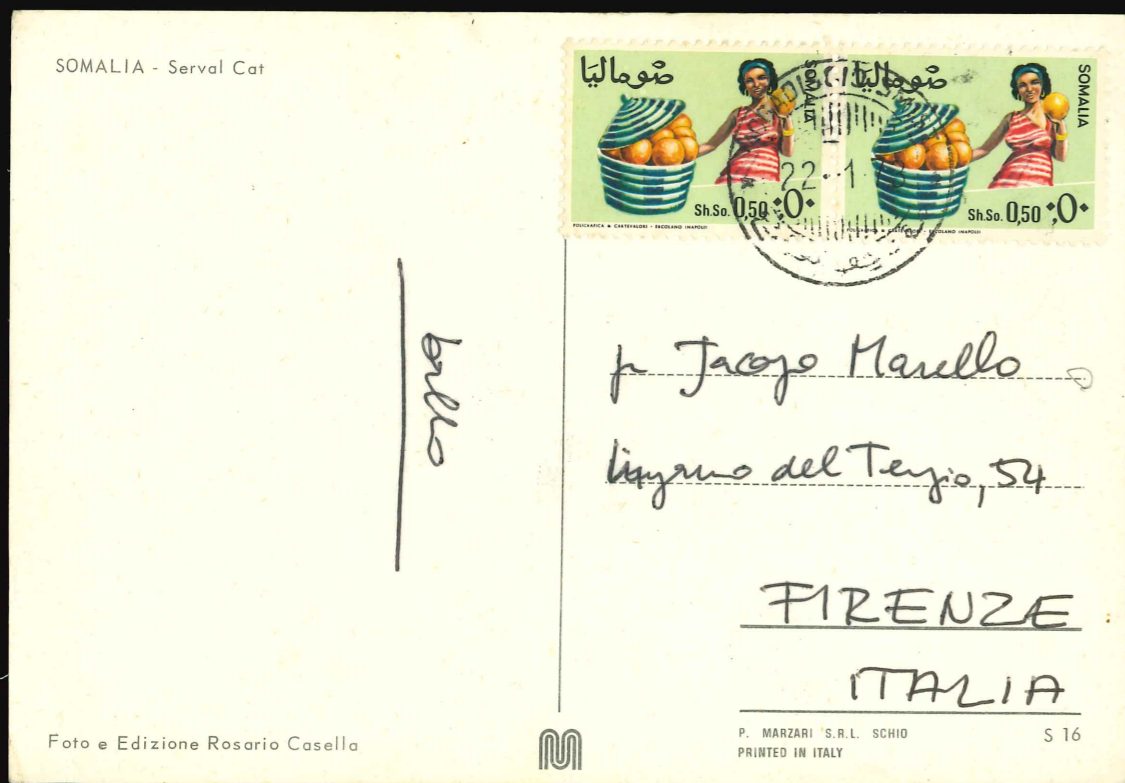 SOMALIA - Serval Cat
صوماليا
SOMALIA
Sh.So. 0,50 ٠،٥٠
POLIGRAFICA & CARTEVALORI - ERCOLANO (NAPOLI)
صوماليا
SOMALIA
Sh.So. 0,50 ٠،٥٠
POLIGRAFICA & CARTEVALORI - ERCOLANO (NAPOLI)
22 1
Jacopo Marello
del Tempio, 54
FIRENZE
ITALIA
Foto e Edizione Rosario Casella
P. MARZARI S.R.L. SCHIO
PRINTED IN ITALY
S 16